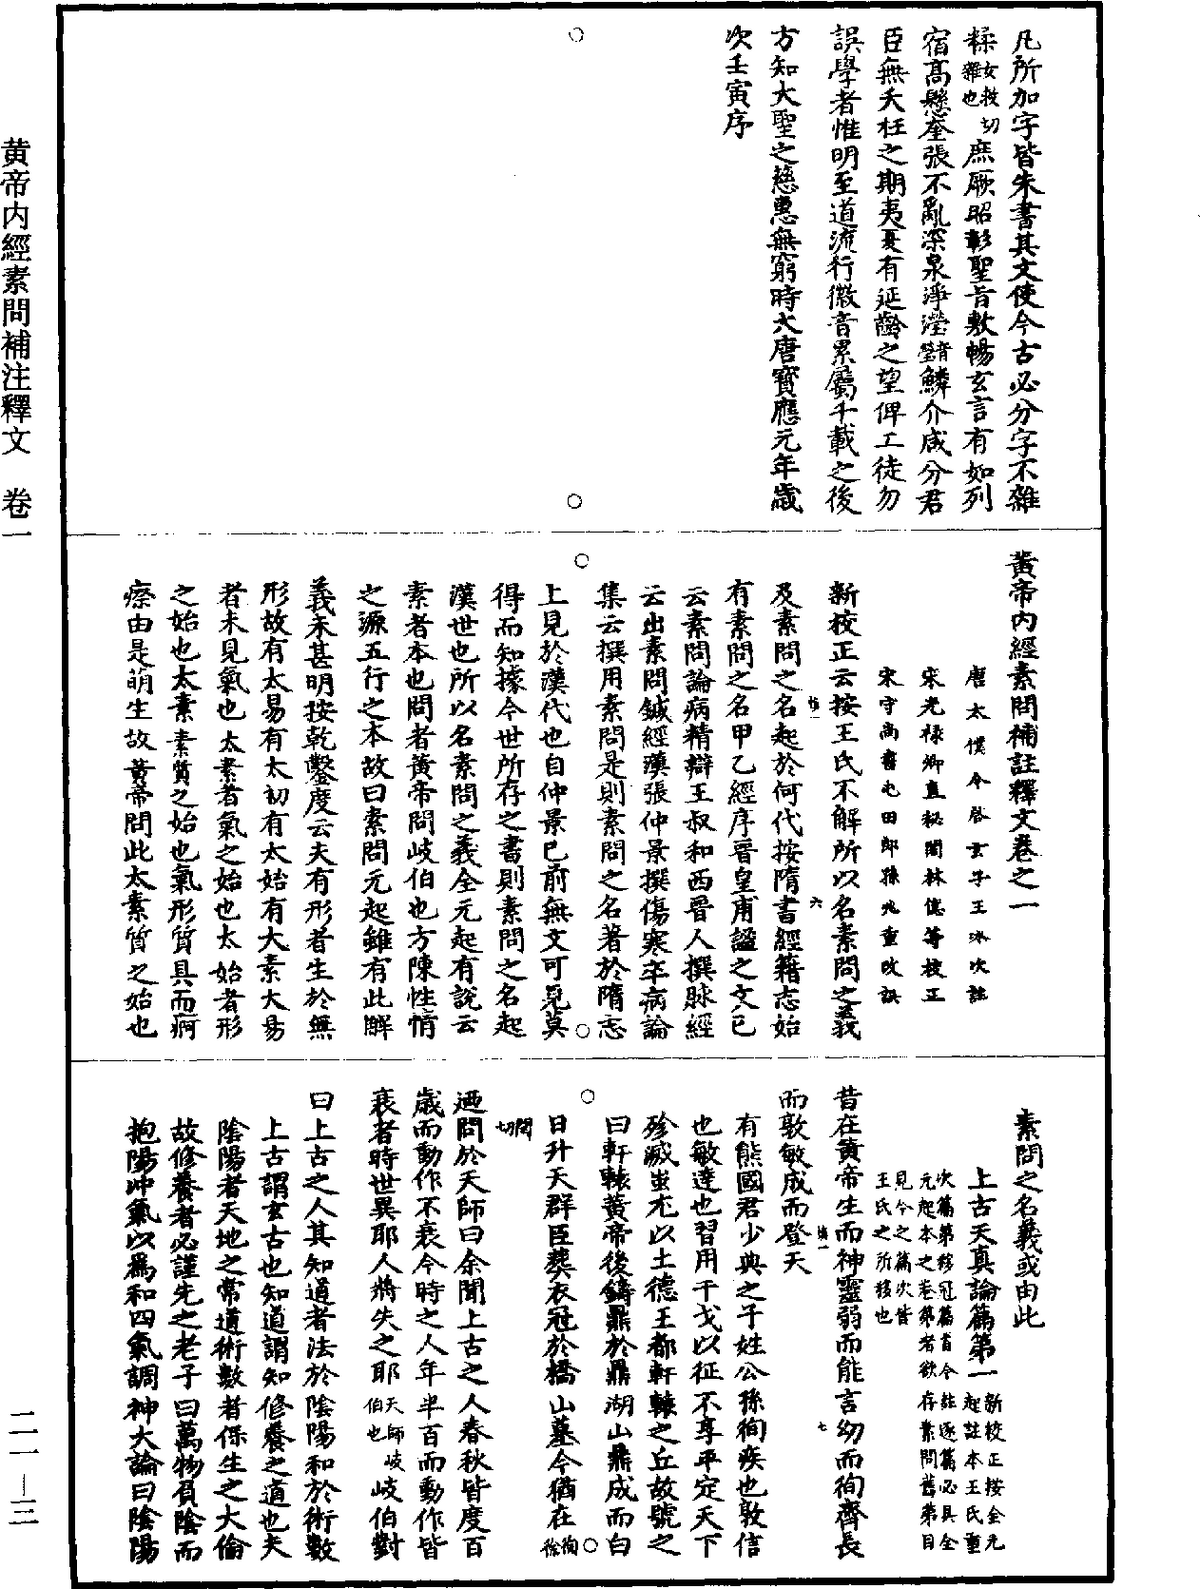 凡所加字皆朱書其文使今古必分字不雜
糅女救切雜也庶厥昭彰聖旨敷暢玄言有如列
宿高懸奎張不亂深泉淨瀅鱗介咸分君
臣無夭枉之期夷夏有延齡之望俾工徒勿
誤學者惟明至道流行徽音累屬千載之後
方知大聖之慈惠無窮時大唐寶應元年歲
次壬寅序
黃帝內經素問補註釋文卷之一
唐太僕令啓玄子王冰次註
宋光祿卿直秘閣林億等校正
宋守尚書屯田郎孫兆重改誤
新校正云按王氏不解所以名素問之義
及素問之名起於何代按隋書經籍志始
有素問之名甲乙經序晉皇甫謐之文已
云素問論病精辯王叔和西晉人撰脉經
云出素問鍼經漢張仲景撰傷寒卒病論
集云撰用素問是則素問之名著於隋志
上見於漢代也自仲景已前無文可見莫
得而知據今世所存之書則素問之名起
漢世也所以名素問之義全元起有說云
素者本也問者黃帝問岐伯也方陳性情
之源五行之本故曰素問元起雖有此解
義未甚明按乾鑿度云夫有形者生於無
形故有太易有太初有太始有太素太易
者未見氣也太素者氣之始也太始者形
之始也太素素質之始也氣形質具而痾
瘵由是萌生故黃帝問此太素質之始也
素問之名義或由此
上古天真論篇第一新校正按全元起註本王氏重
次篇第移冠篇首今註逐篇必具全
元起本之卷第者欲存素問舊第目
見今之篇次皆
王氏之所移也
昔在黃帝生而神靈弱而能言幼而徇齊長
而敦敏成而登天
有熊國君少典之子姓公孫徇疾也敦信
也敏達也習用干戈以征不享平定天下
殄滅蚩尤以土德王都軒轅之丘故號之
曰軒轅黃帝後鑄鼎於鼎湖山鼎成而白
日升天群臣葬衣冠於橋山墓今猶在徇徐
閏切
迺問於天師曰余聞上古之人春秋皆度百
歲而動作不衰今時之人年半百而動作皆
衰者時世異耶人將失之耶天師岐伯也岐伯對
曰上古之人其知道者法於陰陽和於術數
上古謂玄古也知道謂知修養之道也夫
陰陽者天地之常道術數者保生之大倫
故修養者必謹先之老子曰萬物負陰而
抱陽冲氣以為和四氣調神大論曰陰陽
黃帝內經素問補注釋文　卷一
二一—三